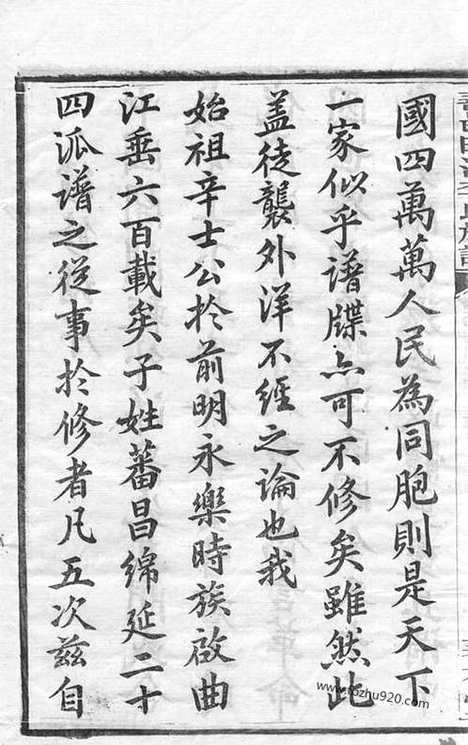 國四萬萬人民為同胞則是天下
一家似乎譜牒亦可不修矣雖然此
盖徒襲外洋不經之論也我
始祖辛士公於前明永樂時族啟曲
江垂六百載矣子姓蕃昌綿延二十
四派譜之從事於修者凡五次茲自